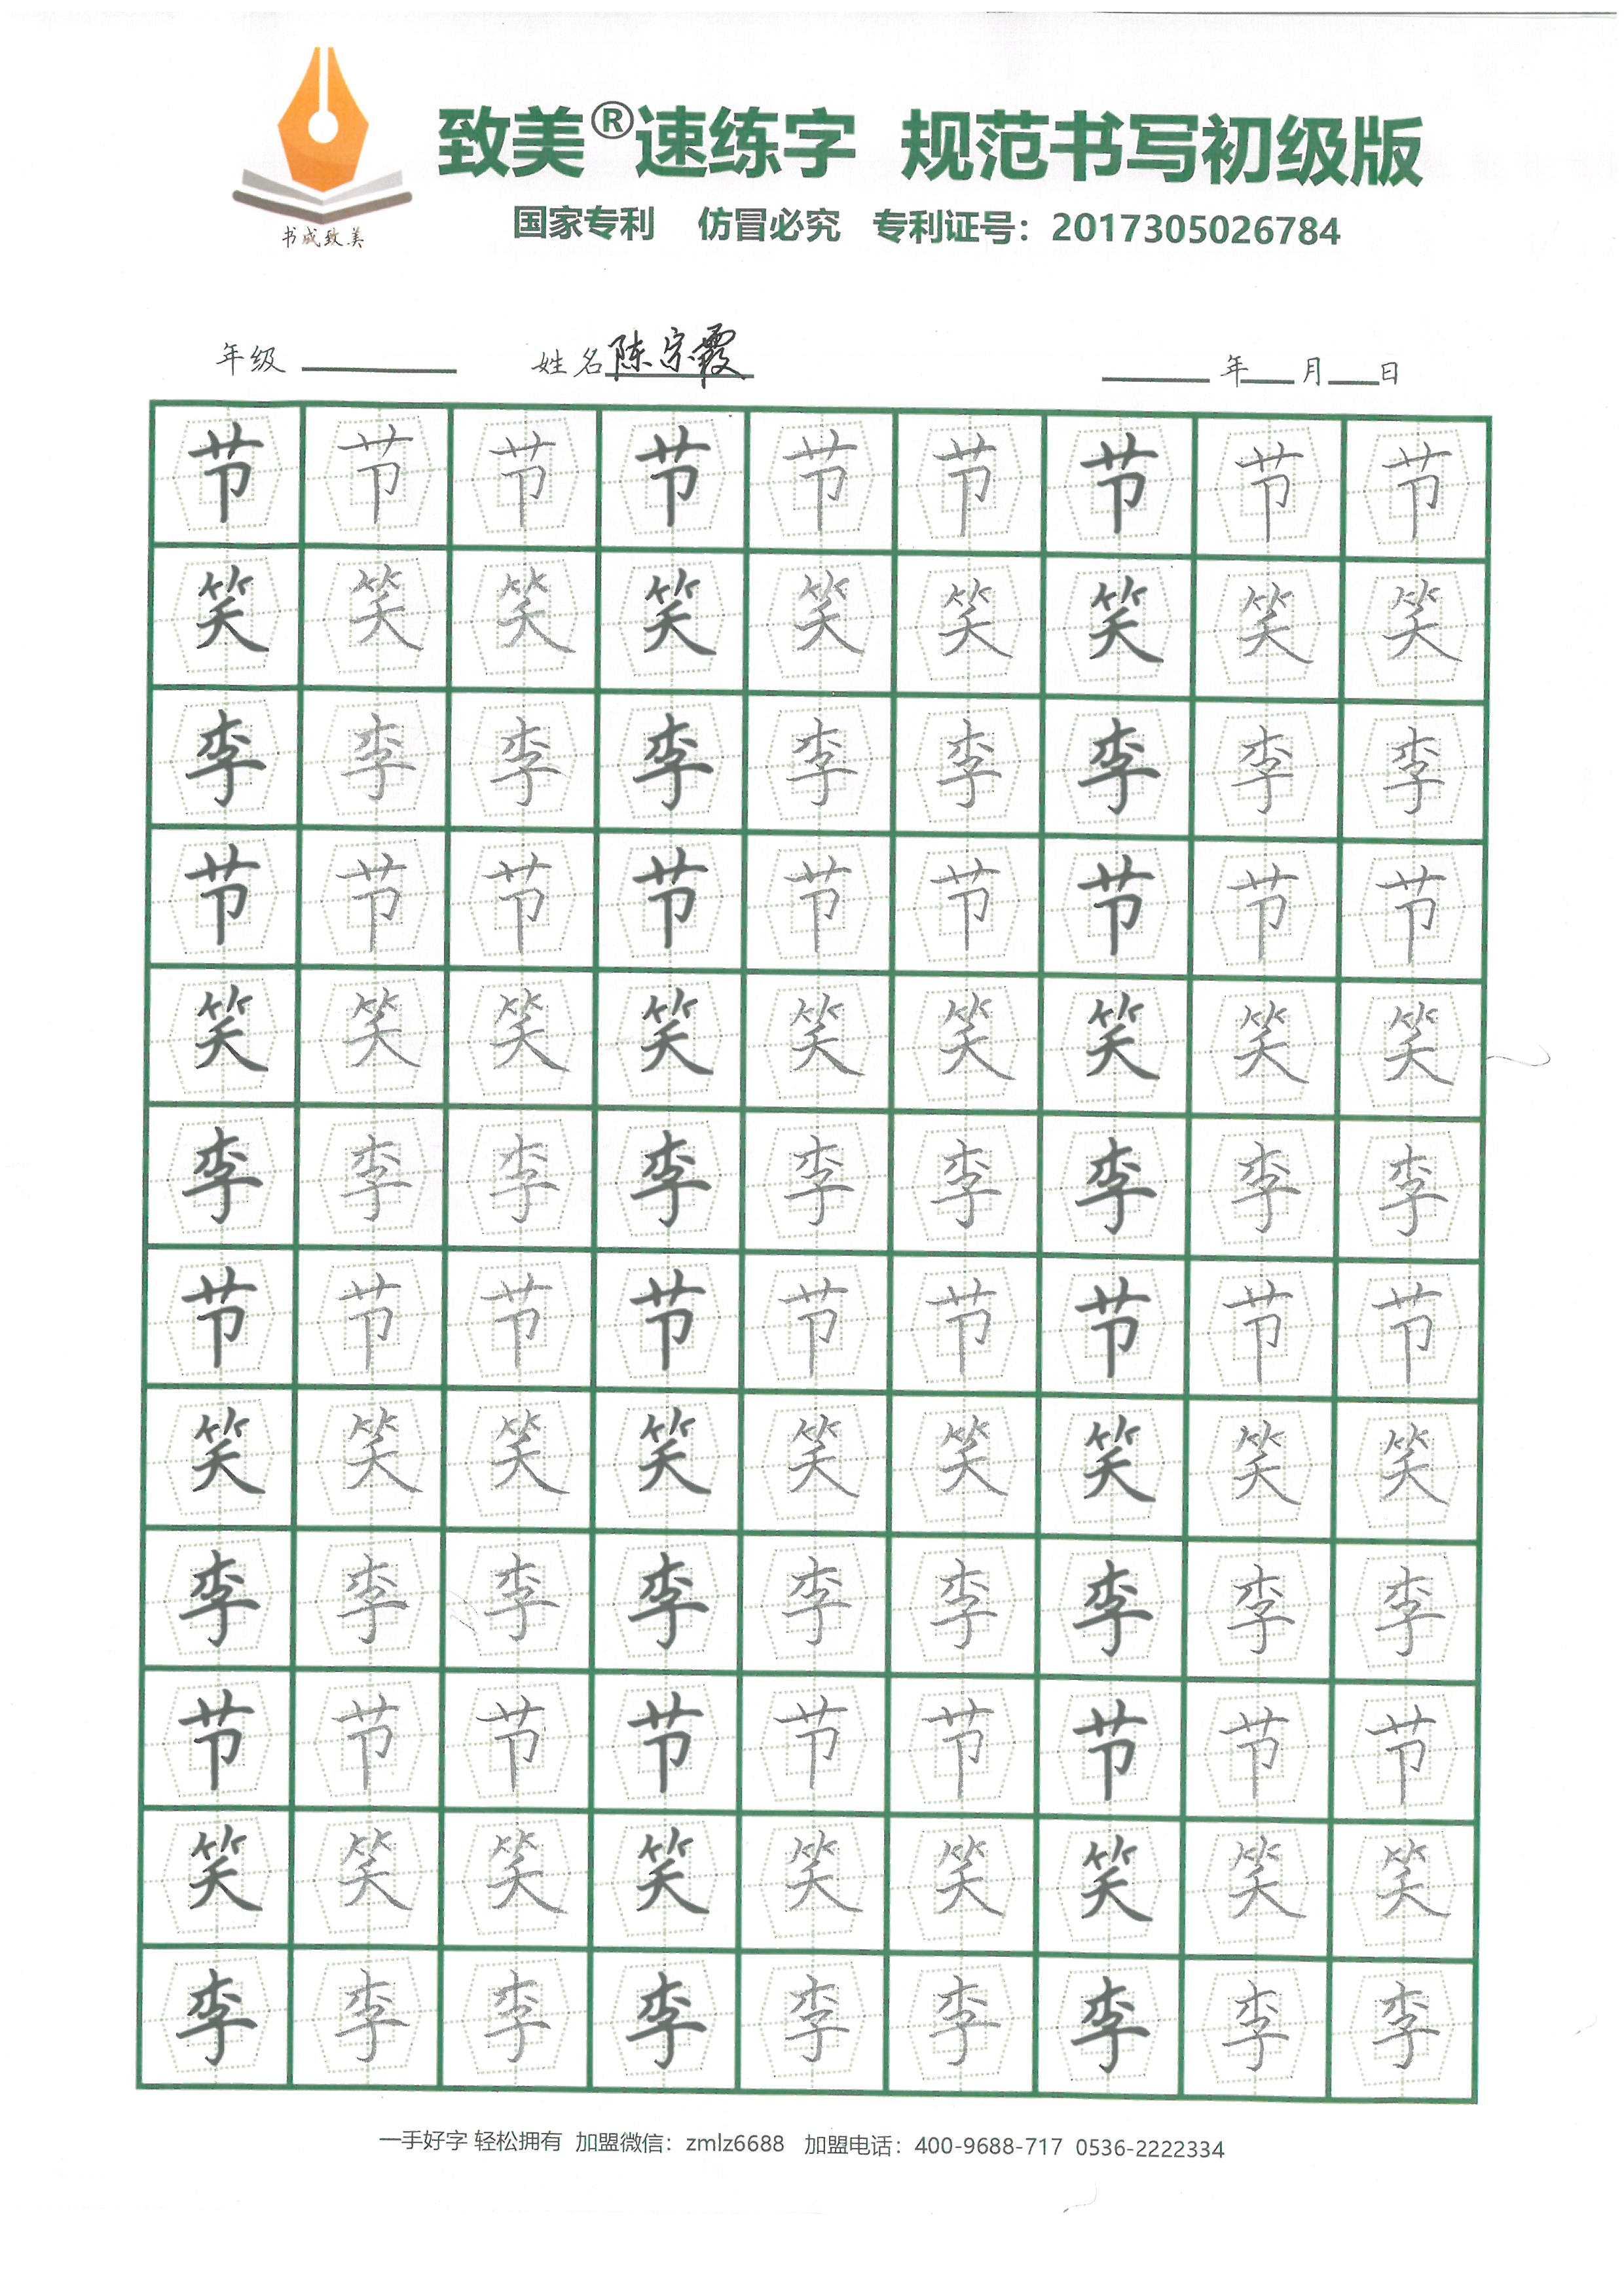 致美®速练字 规范书写初级版
国家专利 仿冒必究 专利证号：2017305026784
书成致美
年级 姓名 陈宗霞 年 月 日
节 节 节 节 节 节 节 节 节
笑 笑 笑 笑 笑 笑 笑 笑 笑
李 李 李 李 李 李 李 李 李
节 节 节 节 节 节 节 节 节
笑 笑 笑 笑 笑 笑 笑 笑 笑
李 李 李 李 李 李 李 李 李
节 节 节 节 节 节 节 节 节
笑 笑 笑 笑 笑 笑 笑 笑 笑
李 李 李 李 李 李 李 李 李
节 节 节 节 节 节 节 节 节
笑 笑 笑 笑 笑 笑 笑 笑 笑
李 李 李 李 李 李 李 李 李
一手好字 轻松拥有 加盟微信：zmlz6688 加盟电话：400-9688-717 0536-2222334